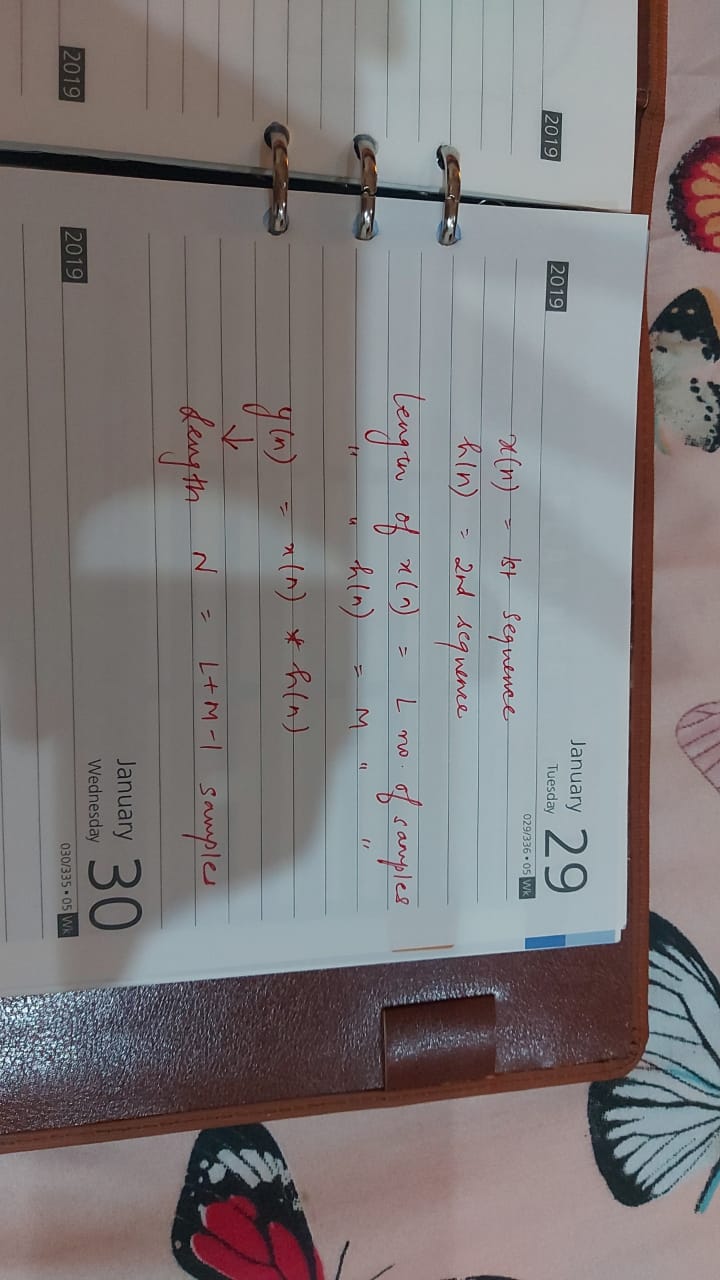 2019
2019
January 29
Tuesday
029/336 • 05 Wk
x(n) = 1st sequence
h(n) = 2nd sequence
Length of x(n) = L no. of samples
" " h(n) = M " "
y(n) = x(n) * h(n)
↓
Length N = L+M-1 samples
January 30
Wednesday
2019
2019
030/335 • 05 Wk